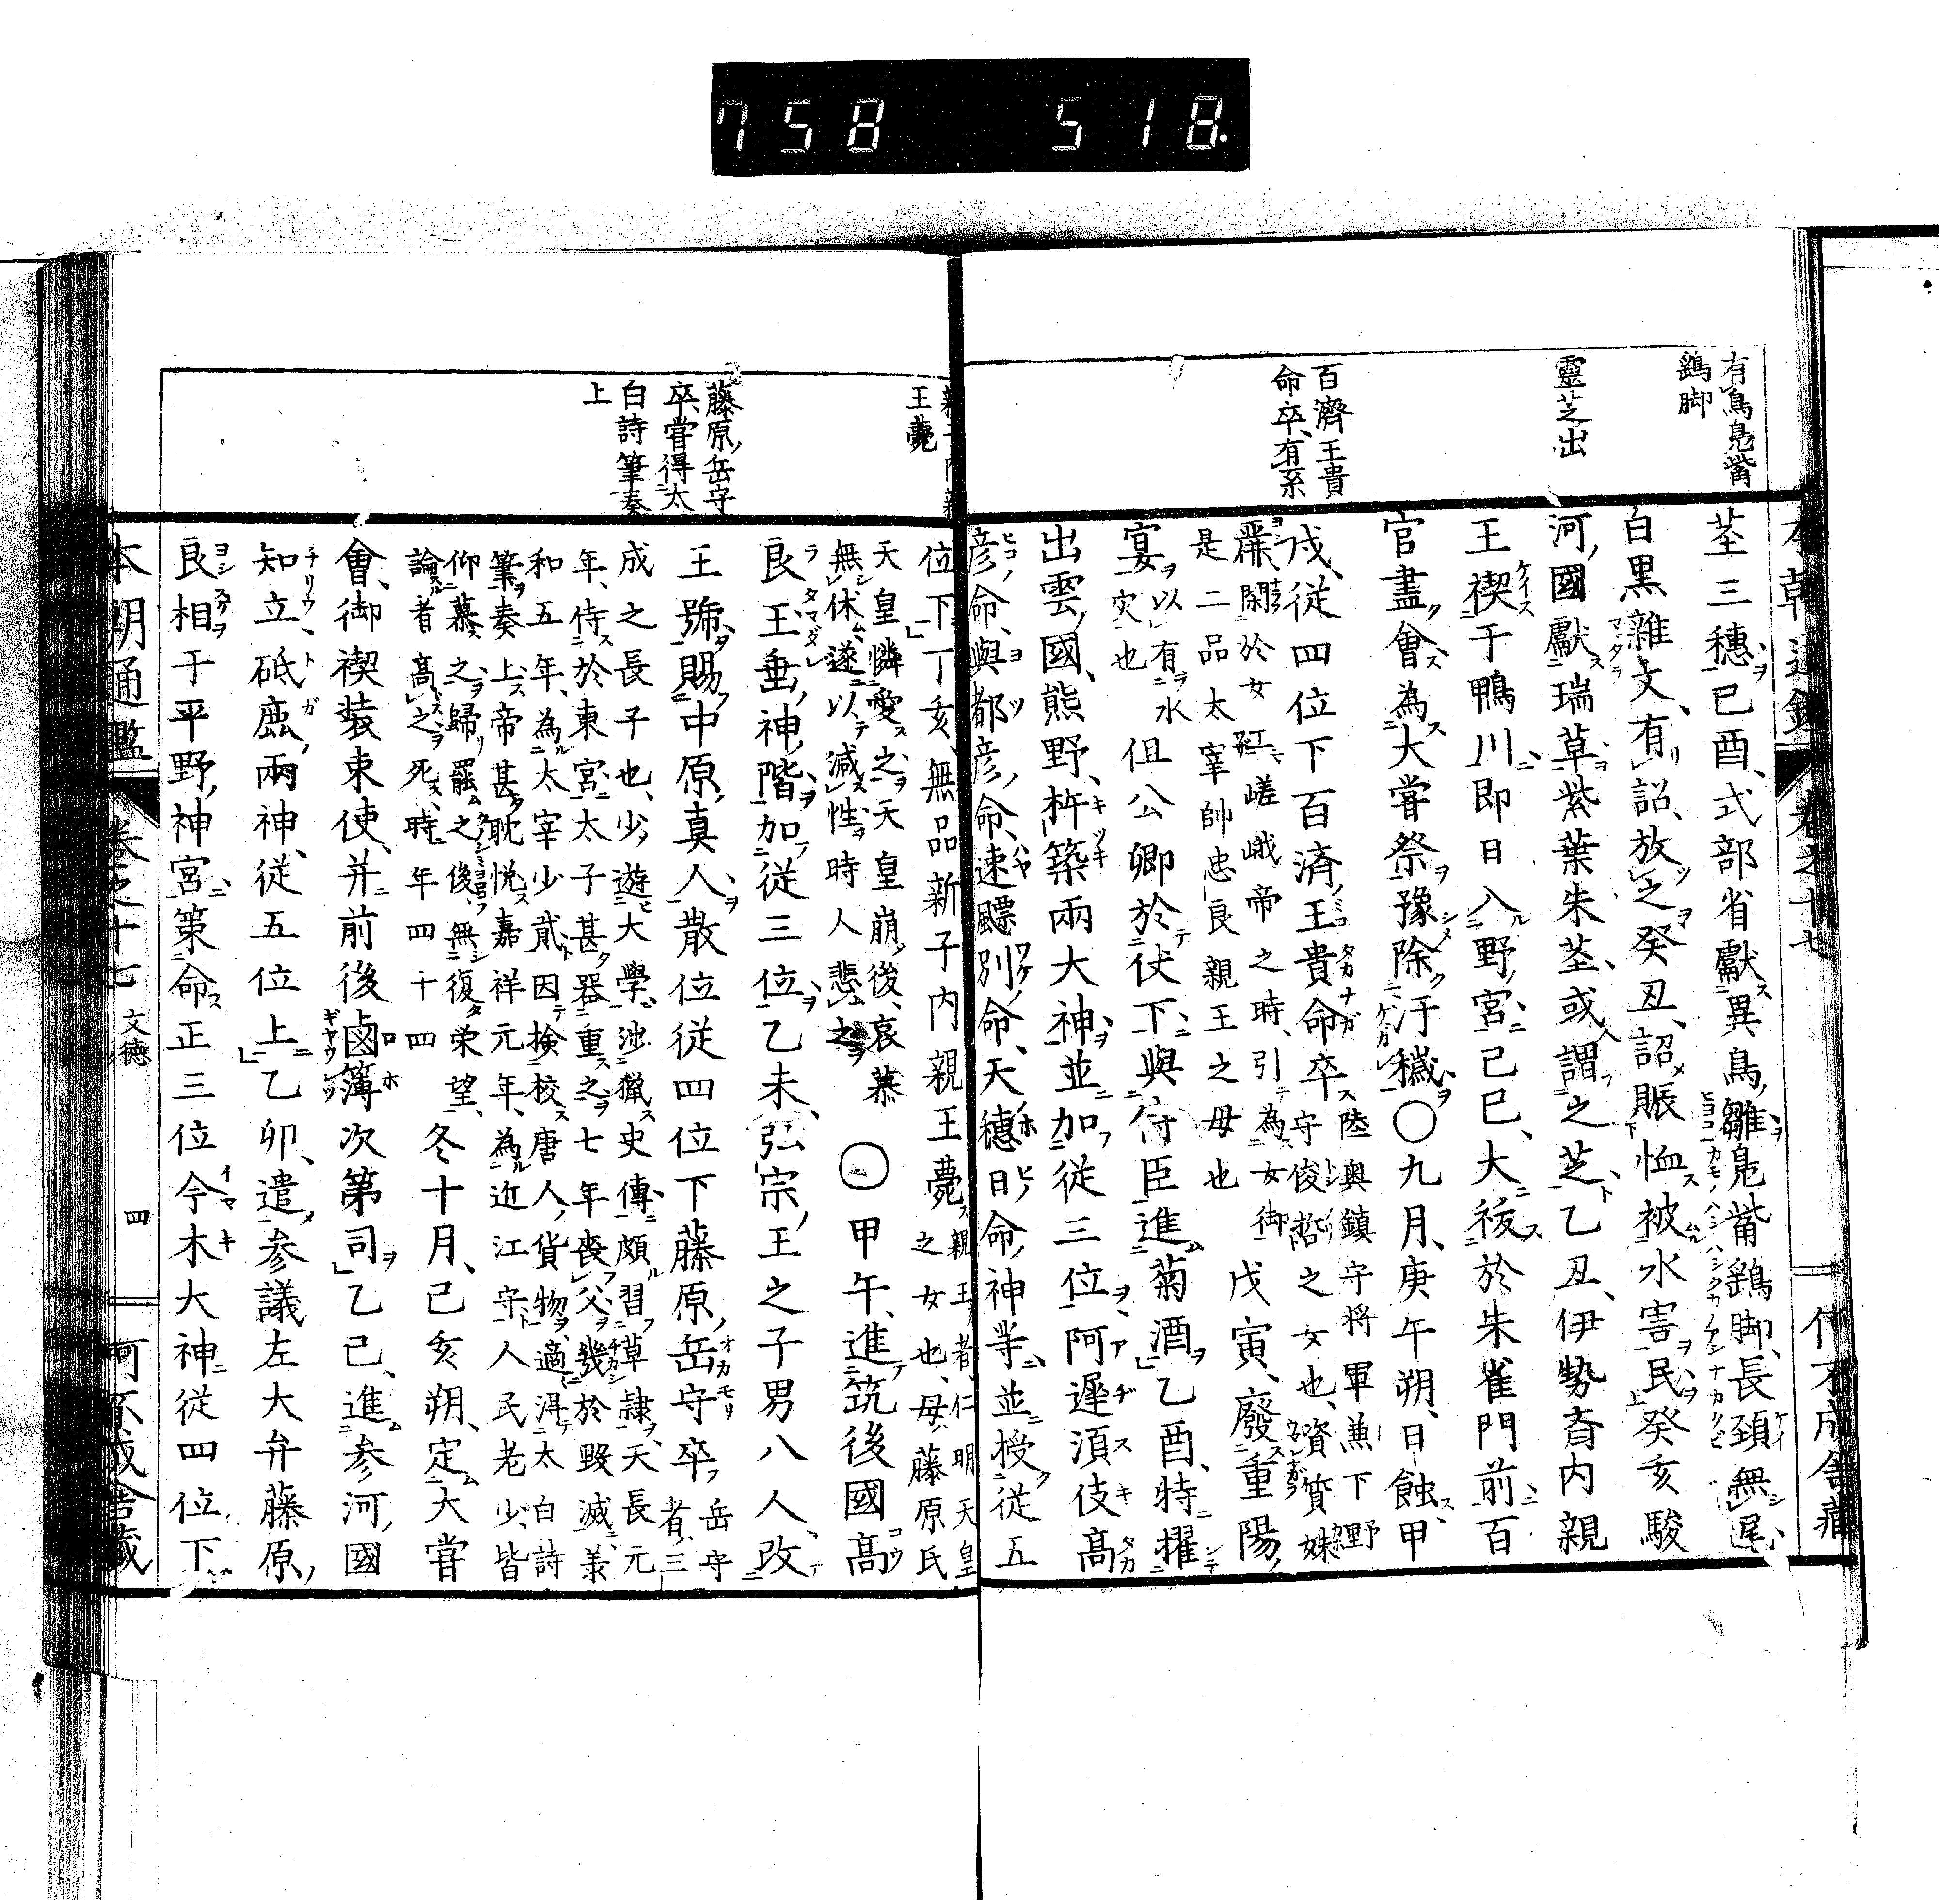 758 518.
有鳥鳧觜
鷄脚
靈芝出
百濟王貴
命卒有系
莖三穗己酉式部省獻異鳥雛鳧觜鷄脚長頚無尾
白黒雜文有詔放之癸丑詔賑恤被水害民癸亥駿
河國獻瑞草紫葉朱莖或謂之芝乙丑伊勢斎内親
王禊于鴨川即日入野宮己巳大祓於朱雀門前百
官盡會為大甞祭豫除汙穢〇九月庚午朔日蝕甲
戌從四位下百済王貴命卒
陸奥鎮守将軍兼下野
守俊哲之女也資質媒
麗閑於女紅嵯峨帝之時引為女御
是二品太宰帥忠良親王之母也
戊寅廢重陽
宴
以有水
灾也
但公卿於仗下與侍臣進菊酒乙酉特擢
出雲國熊野杵築兩大神並加從三位阿遲須伎高
彦命與都彦命速飄別命天穗日命神等並授從五
王薨
藤原岳守
卒甞得太
白詩筆奏
上
位下丁亥無品新子内親王薨
親王者仁明天皇
之女也母藤原氏
天皇憐愛之天皇崩後哀慕
無休遂以滅性時人悲之
〇甲午進筑後國高
良玉垂神階加從三位乙未弘宗王之子男八人改
王號賜中原真人散位從四位下藤原岳守卒
岳守
者三
成之長子也少遊大學涉獵史傳頗習草隷天長元
年侍於東宮太子甚器重之七年喪父幾於毀滅兼
和五年為太宰少貳因検校唐人貨物適得太白詩
筆奏上帝甚耽悦嘉祥元年為近江守人民老少皆
仰慕之歸罷之後無復栄望
論者高之死時年四十四
冬十月己亥朔定大甞
會御禊装束使并前後鹵簿次第司乙巳進参河國
知立砥鹿兩神從五位上乙卯遣参議左大弁藤原
良相于平野神宮策命正三位今木大神從四位下
本朝通鑑 卷之十七 文德 四